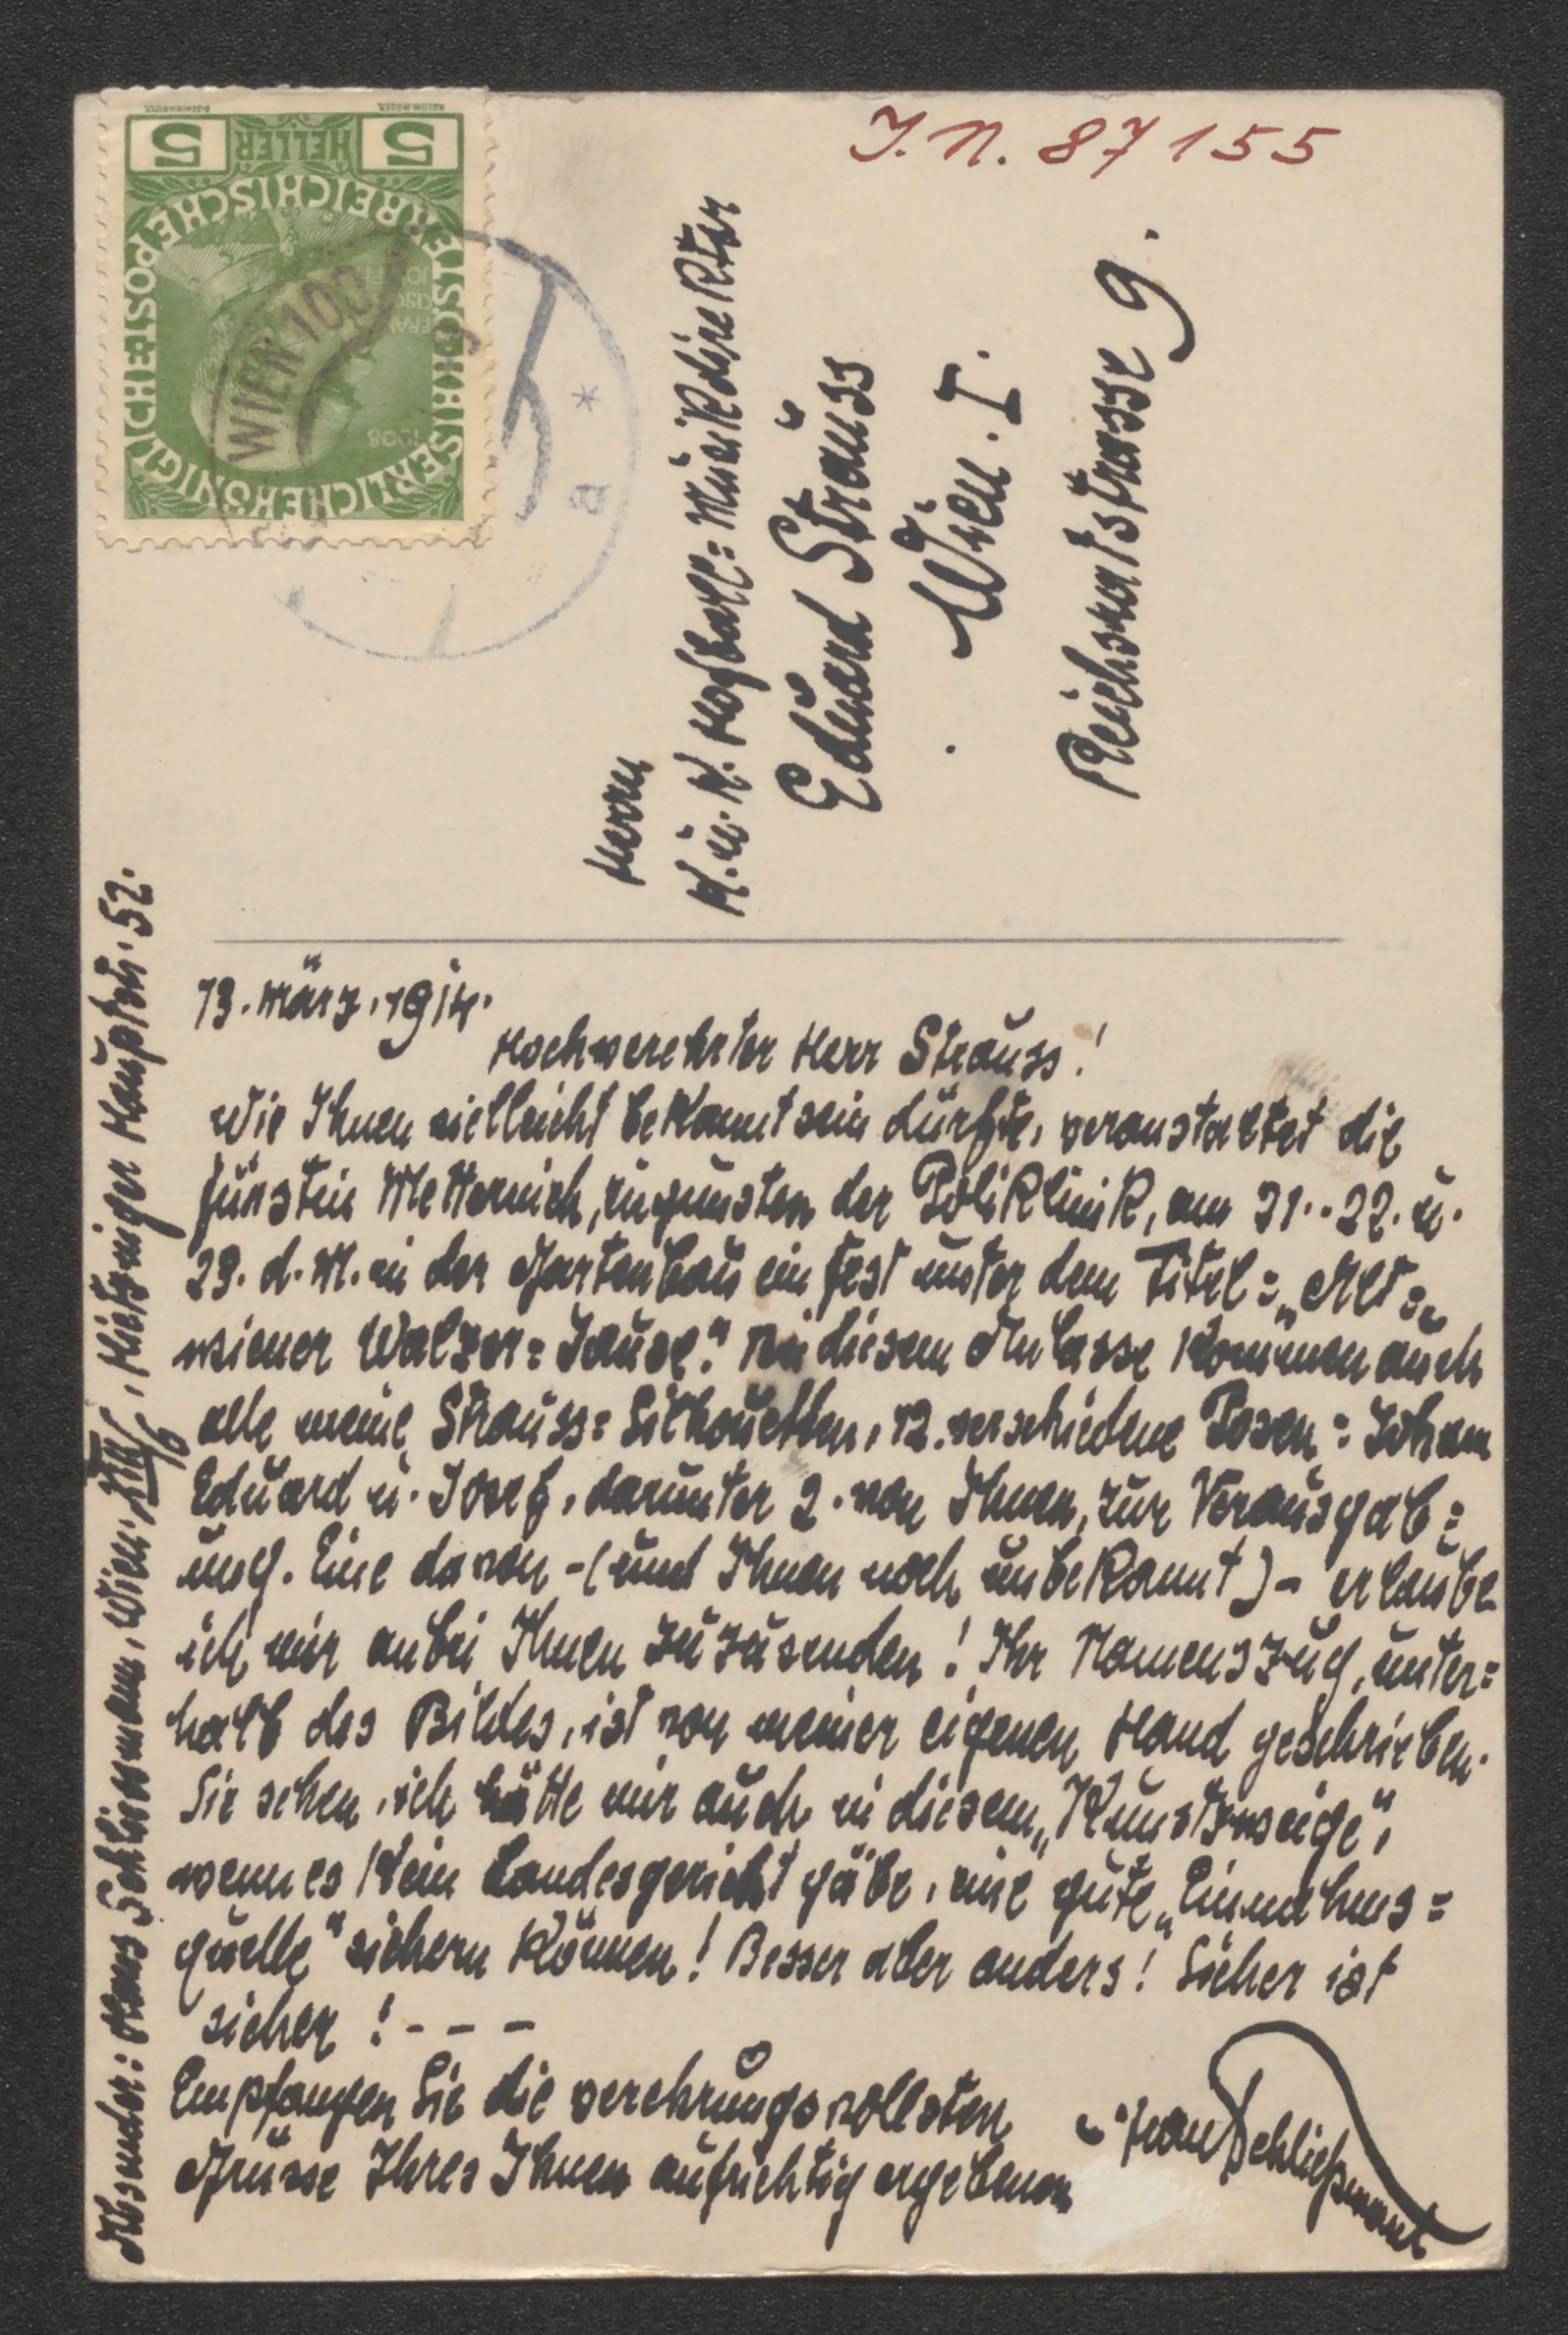 J.N. 87155
5 HELLER 5
KAISERLICHEKÖNIGLICHE ÖSTERREICHISCHE POST
1908
WIEN 100
a *
Herrn
K. u. K. Hofball=Musikdirektor
Eduard Strauss
Wien. I.
Reichsratstrasse 9.
Absender: Hans Schliessmann, Wien. XIII/6, Hietzinger Hauptstr. 52.
13. März. 1914.
Hochverehrter Herr Strauss!
Wie Ihnen vielleicht bekannt sein dürfte, veranstaltet die
Fürstin Metternich, zugunsten der Poliklinik, am 21.. 22. u.
23. d. M. in der Gartenbau ein Fest unter dem Titel: „Alt=
wiener Walzer=Jause." Bei diesem Anlasse kommen auch
alle meine Strauss=Silhouetten, 12. verschiedene Posen: Johann
Eduard u. Josef, darunter 2. von Ihnen, zur Verausgab=
ung. Eine davon -(und Ihnen noch unbekannt)- erlaube
ich mir anbei Ihnen zuzusenden! Ihr Namenszug, unter=
halb des Bildes, ist von meiner eigenen Hand geschrieben.
Sie sehen, ich hätte mir auch in diesem „Kunstzweige",
wenn es kein Landesgericht gäbe, eine gute „Einnahms=
quelle" sichern können! Besser aber anders! Sicher ist
sicher! - - -
Empfangen Sie die verehrungsvollsten
Grüsse Ihres Ihnen aufrichtig ergebenen
Hans Schließmann